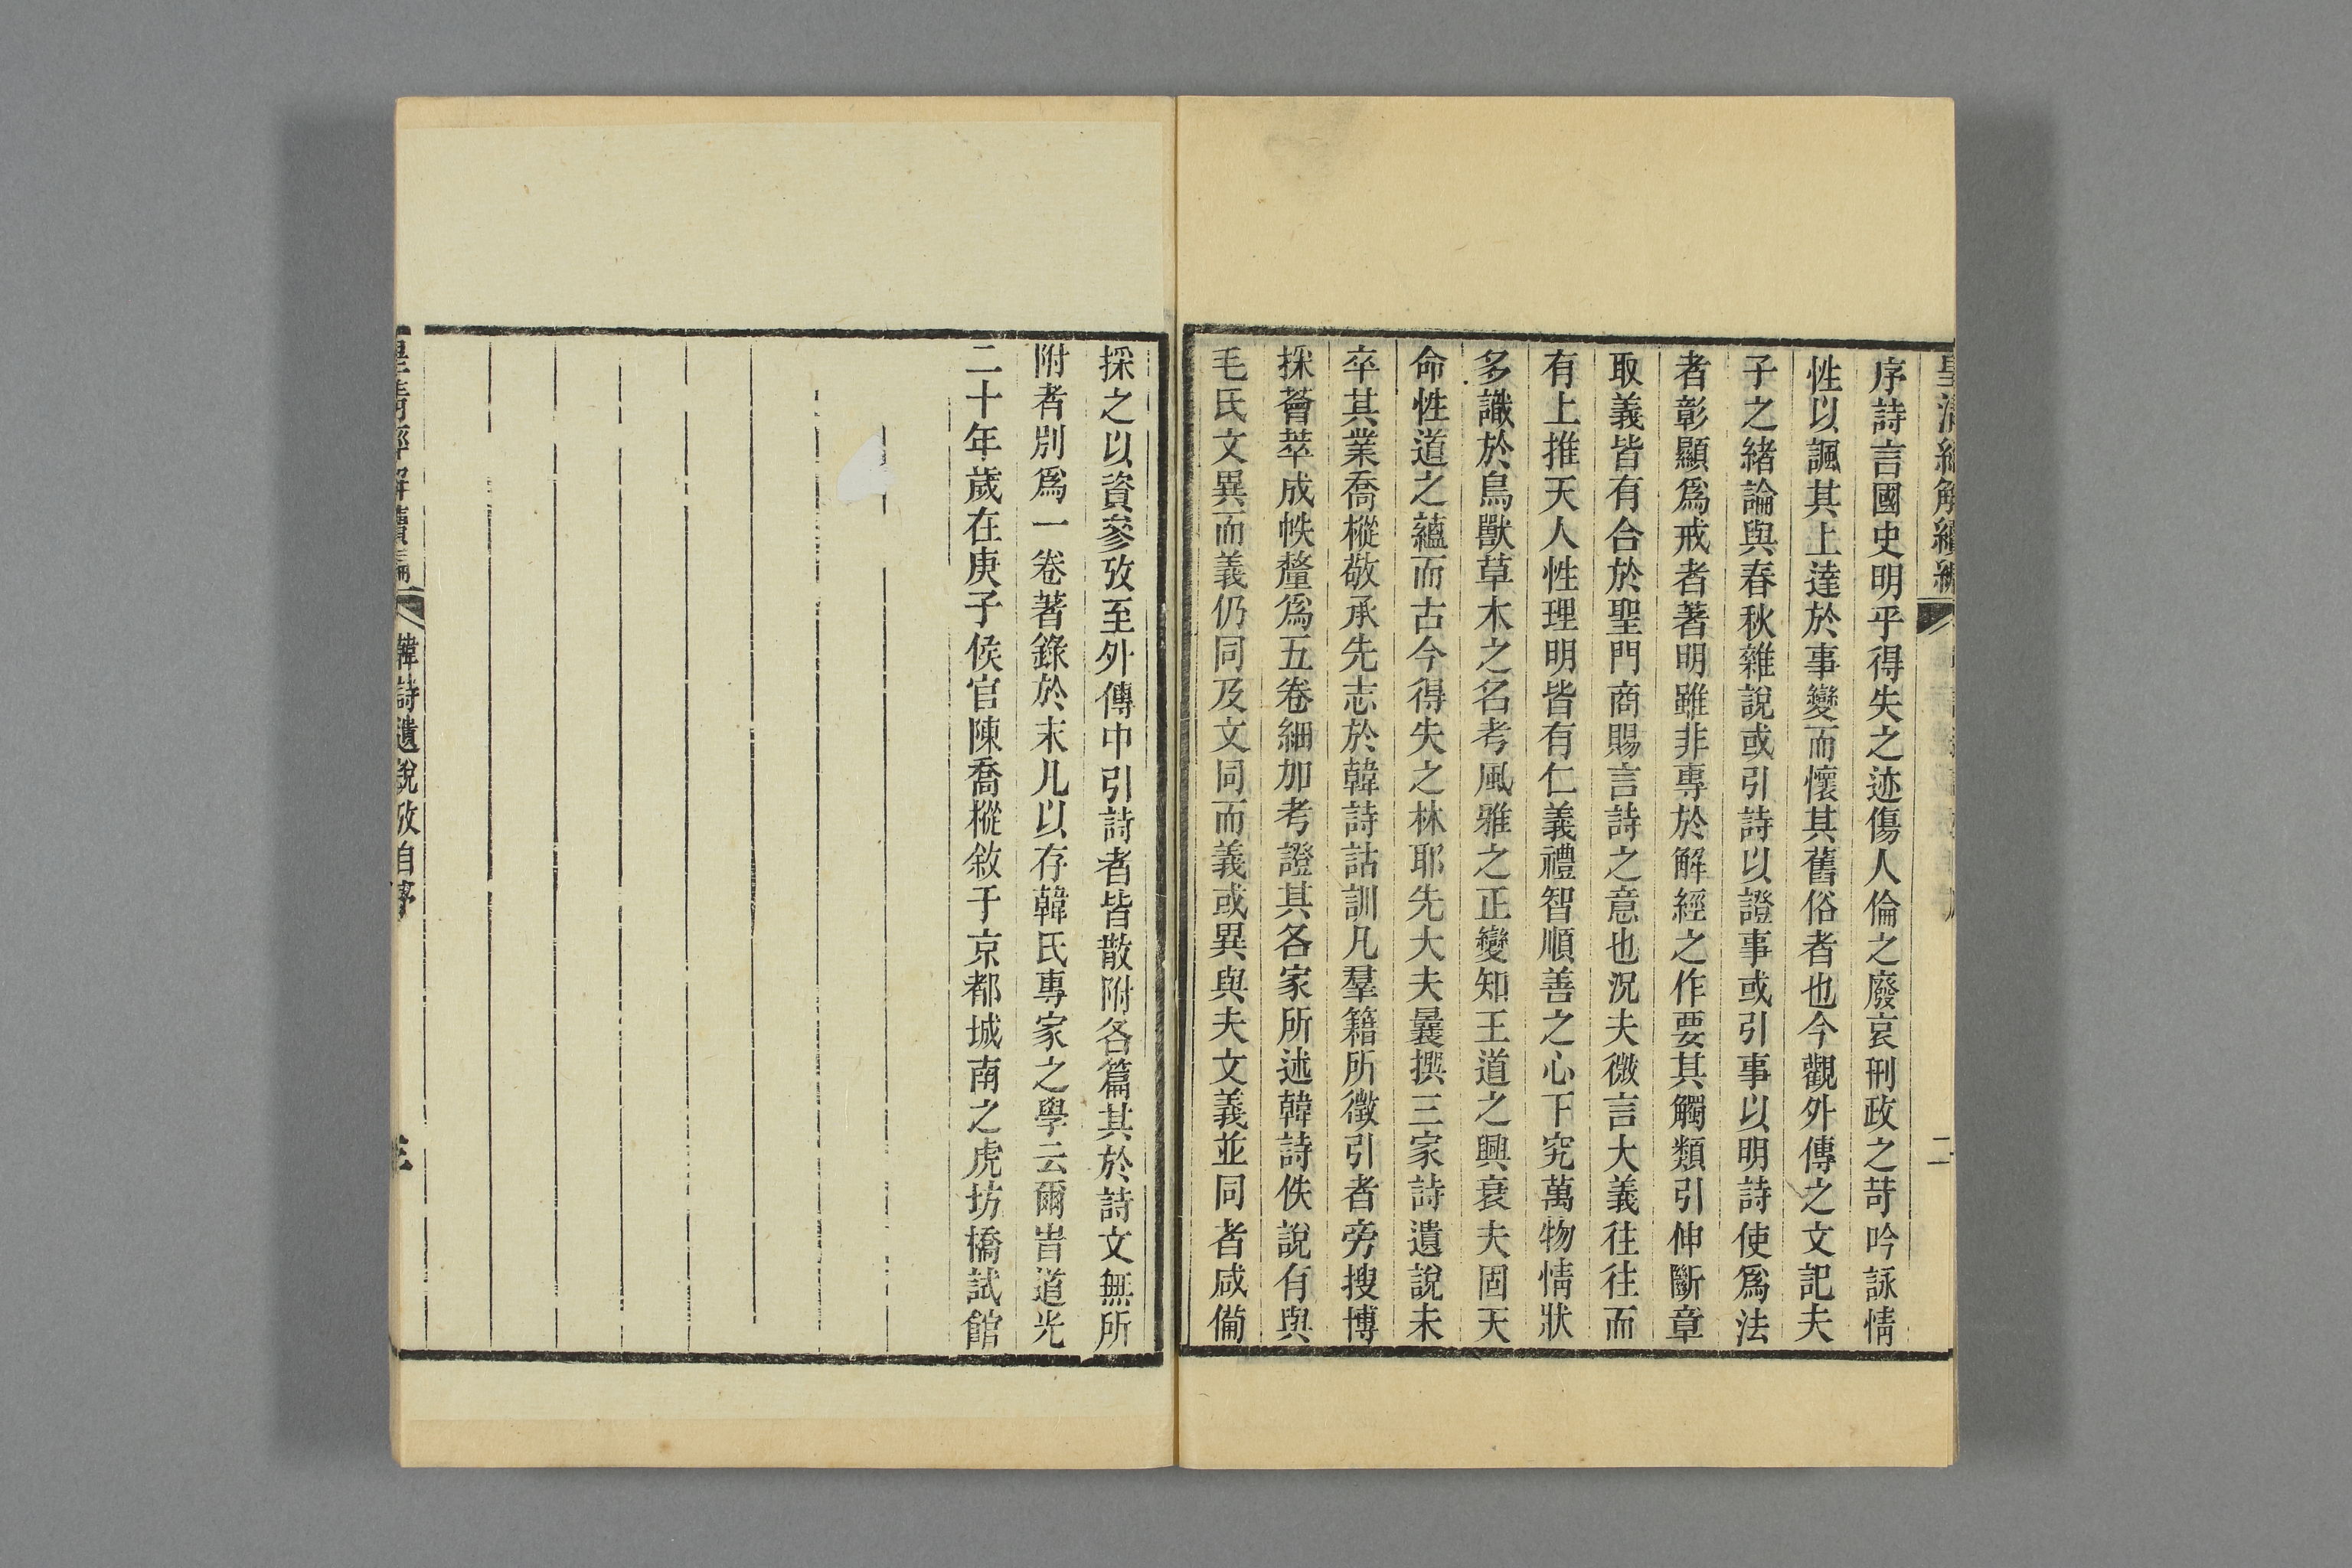 序詩言國史明乎得失之迹傷人倫之廢哀刑政之苛吟詠情
性以諷其上達於事變而懷其舊俗者也今觀外傳之文記夫
子之緒論與春秋雜說或引詩以證事或引事以明詩使爲法
者彰顯爲戒者著明雖非專於解經之作要其觸類引伸斷章
取義皆有合於聖門商賜言詩之意也況夫微言大義往往而
有上推天人性理明皆有仁義禮智順善之心下究萬物情狀
多識於鳥獸草木之名考風雅之正變知王道之興衰夫固天
命性道之蘊而古今得失之林耶先大夫曩撰三家詩遺說未
卒其業喬樅敬承先志於韓詩詁訓凡羣籍所徵引者旁搜博
採薈萃成帙釐爲五卷細加考證其各家所述韓詩佚說有與
毛氏文異而義仍同及文同而義或異與夫文義並同者咸備
採之以資參攷至外傳中引詩者皆散附各篇其於詩文無所
附者別爲一卷著錄於末凡以存韓氏專家之學云爾旹道光
二十年歲在庚子候官陳喬樅敘于京都城南之虎坊橋試館
皇清經解續編
韓詩遺說攷自序